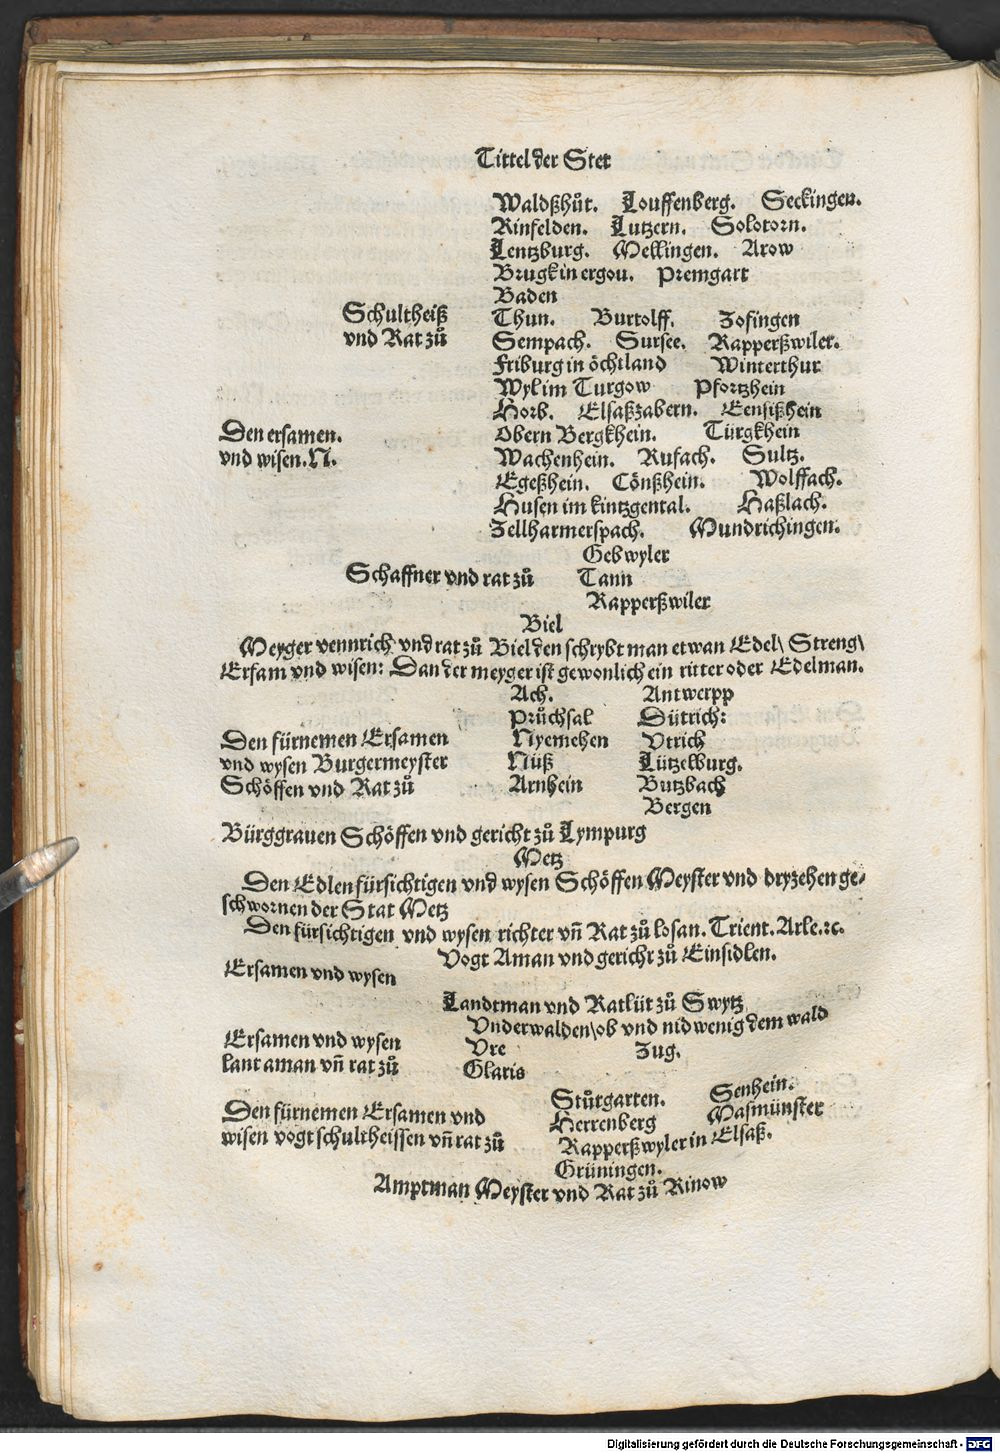 Tittel der Stet
Waldßhůt. Louffenberg. Seckingen.
Rinfelden. Lutzern. Solotorn.
Lentzburg. Mellingen. Arow
Brugk in ergou. Premgart
Baden
Schultheiß
vnd Rat zů
Thun. Burtolff. Zofingen
Sempach. Sursee. Rapperßwiler.
Friburg in öchtland Winterthur
Wyl im Turgow Pfortzhein
Horb. Elsaßzabern. Eensißhein
Den ersamen.
vnd wisen. N.
Obern Bergkhein. Türgkhein
Wachenhein. Rufach. Sultz.
Egeßhein. Cönßhein. Wolffach.
Husen im kintzgental. Haßlach.
Zellharmerspach. Mundrichingen.
Schaffner vnd rat zů
Gebwyler
Tann
Rapperßwiler
Biel
Meyger vennrich vnd rat zů Biel den schrybt man etwan Edel\ Streng\
Ersam vnd wisen: Dan der meyger ist gewonlich ein ritter oder Edelman.
Den fürnemen Ersamen
vnd wysen Burgermeyster
Schöffen vnd Rat zů
Ach. Antwerpp
Průchsal Dütrich:
Nyemehen Vtrich
Nüß Lützelburg.
Arnhein Butzbach
Bergen
Bürggrauen Schöffen vnd gericht zů Lympurg
Metz
Den Edlen fürsichtigen vnd wysen Schöffen Meyster vnd dryzehen ge-
schwornen der Stat Metz
Den fürsichtigen vnd wysen richter vn̄ Rat zů losan. Trient. Arle.⁊c.
Ersamen vnd wysen
Vogt Aman vnd gericht zů Einsidlen.
Landtman vnd Ratlüt zů Swytz
Vnderwalden\ob vnd nid wenig dem wald
Ersamen vnd wysen
lant aman vn̄ rat zů
Vre Zug.
Glaris
Den fürnemen Ersamen vnd
wisen vogt schultheissen vn̄ rat zů
Stůtgarten. Senhein.
Herrenberg Masmünster
Rapperßwyler in Elsaß.
Grüningen.
Amptman Meyster vnd Rat zů Rinow
Digitalisierung gefördert durch die Deutsche Forschungsgemeinschaft - DFG